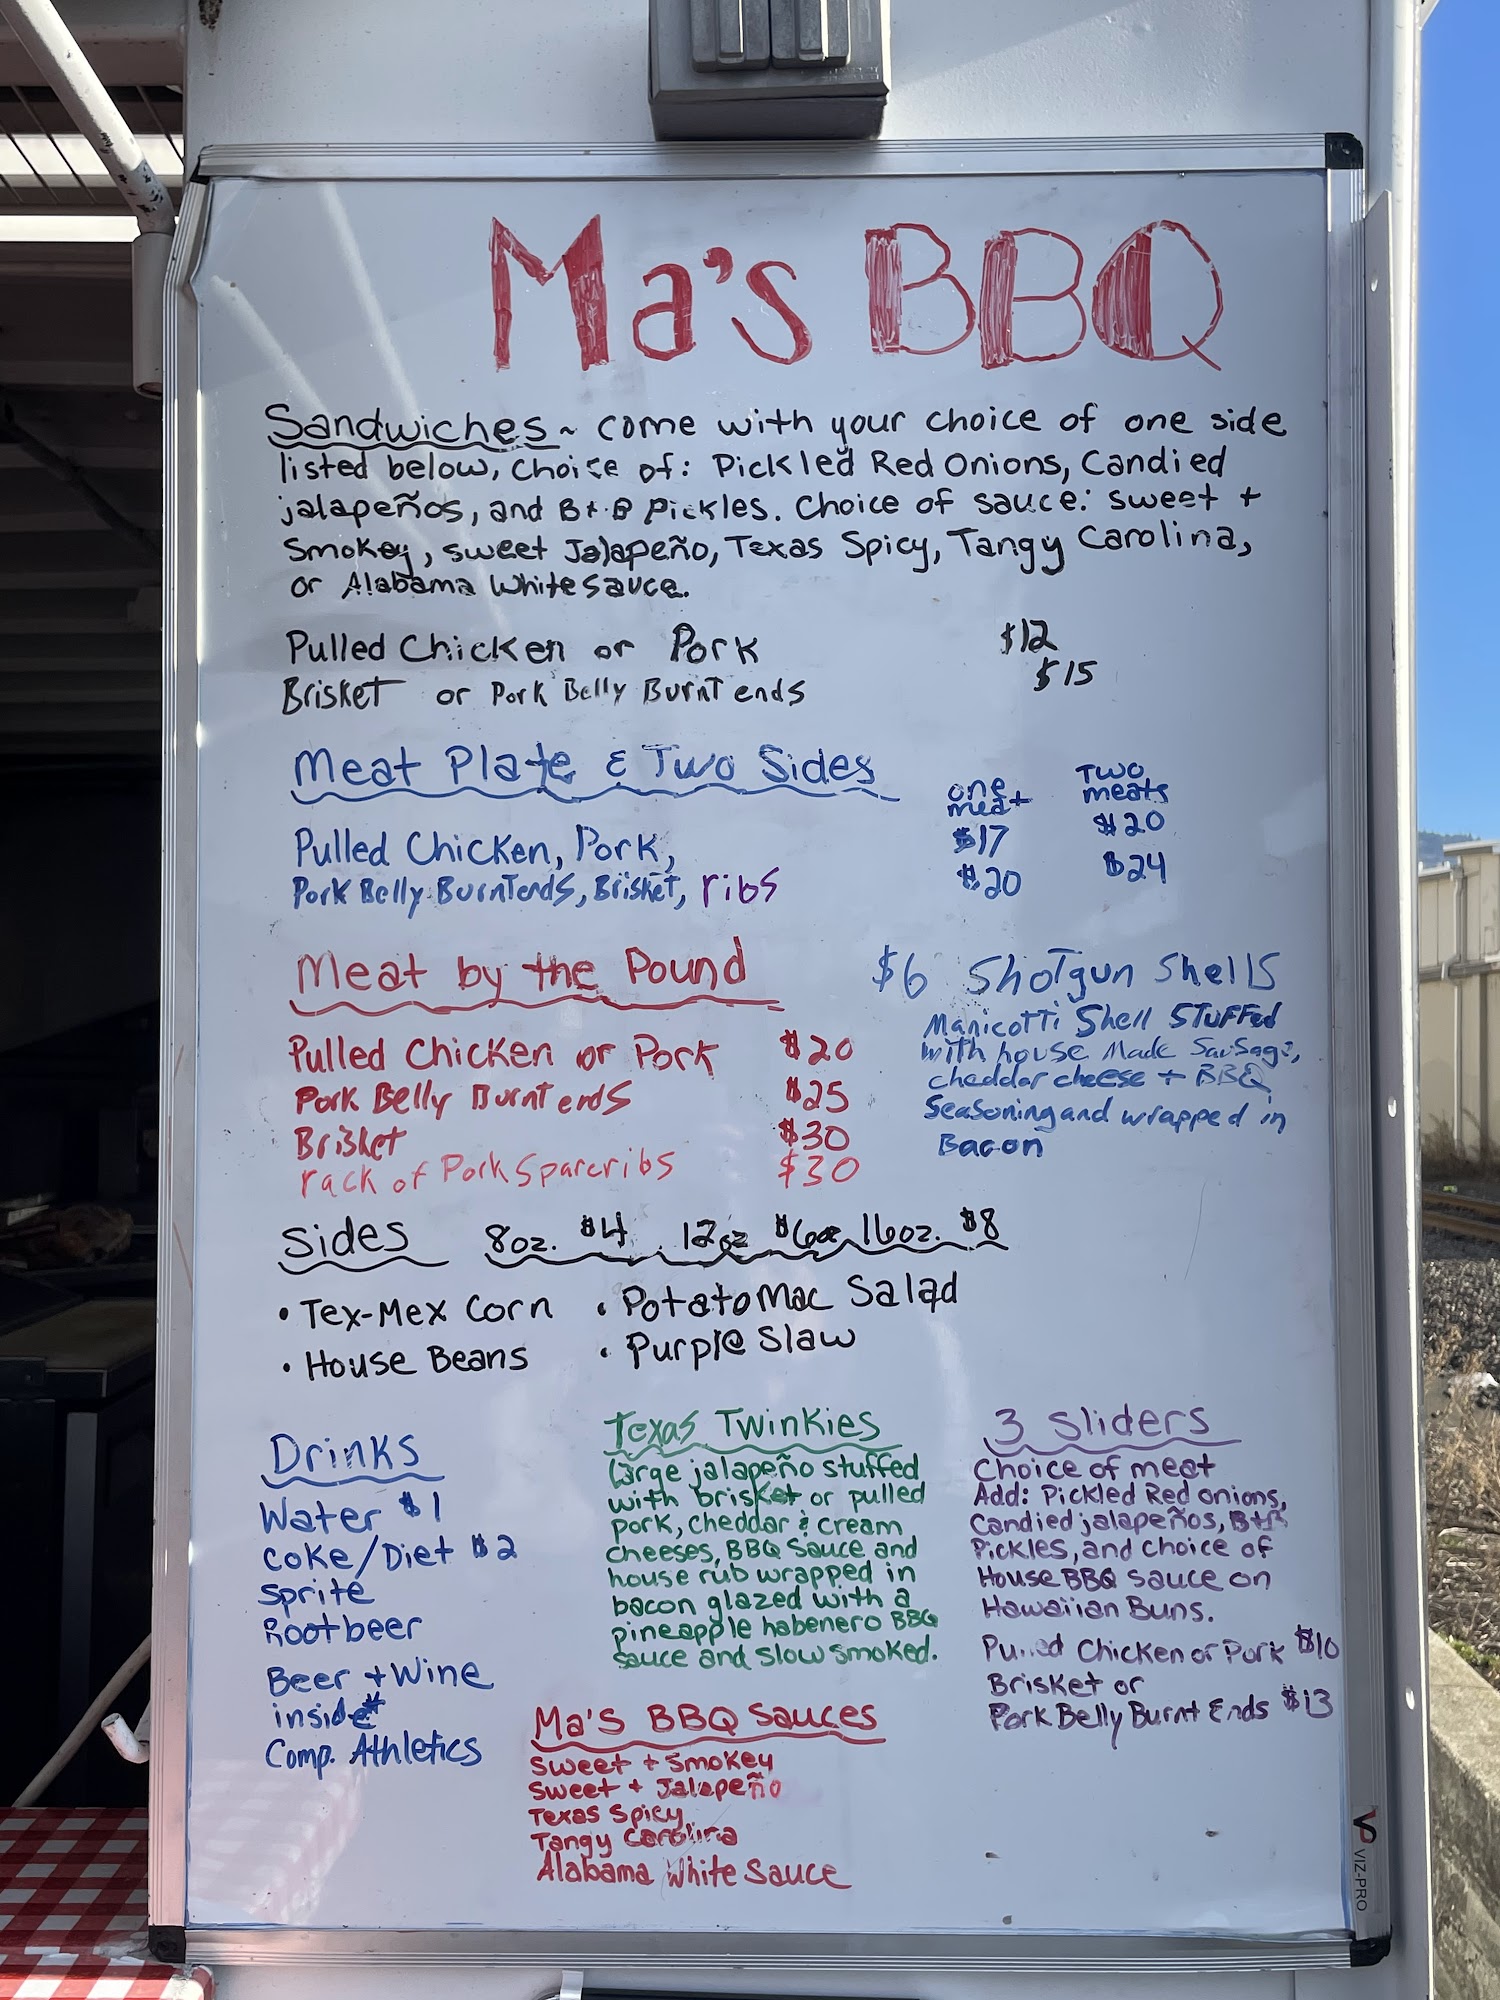 Ma's BBQ
Sandwiches ~ come with your choice of one side
listed below, choice of: Pickled Red Onions, Candied
jalapeños, and B+B Pickles. Choice of sauce: sweet +
Smokey, sweet Jalapeño, Texas Spicy, Tangy Carolina,
or Alabama White sauce.
Pulled Chicken or Pork $12
Brisket or Pork Belly Burnt ends $15
Meat Plate & Two Sides
one meat
Two meats
Pulled Chicken, Pork, $17 $20
Pork Belly Burnt ends, Brisket, ribs $20 $24
Meat by the Pound
Pulled Chicken or Pork $20
Pork Belly Burnt ends $25
Brisket $30
rack of Pork Spareribs $30
$6 Shotgun Shells
Manicotti Shell Stuffed
with house Made Sausage,
cheddar cheese + BBQ
Seasoning and wrapped in
Bacon
Sides 8oz. $4 12oz $6 16oz. $8
• Tex-Mex Corn • Potato Mac Salad
• House Beans • Purple Slaw
Drinks
Water $1
Coke/Diet $2
Sprite
Rootbeer
Beer + Wine
inside
Comp. Athletics
Texas Twinkies
Large jalapeño stuffed
with brisket or pulled
pork, cheddar & cream
cheeses, BBQ Sauce and
house rub wrapped in
bacon glazed with a
pineapple habenero BBQ
sauce and slow smoked.
3 Sliders
Choice of meat
Add: Pickled Red onions,
Candied jalapeños, B+B
Pickles, and choice of
House BBQ sauce on
Hawaiian Buns.
Pulled Chicken or Pork $10
Brisket or
Pork Belly Burnt Ends $13
Ma's BBQ Sauces
Sweet + Smokey
Sweet + Jalapeño
Texas Spicy
Tangy Carolina
Alabama White Sauce
VIZ-PRO